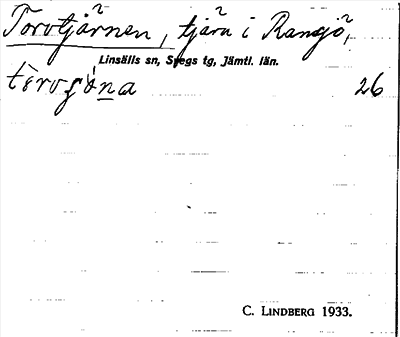 Torvtjärnen, tjärn i Ransjö,
Linsälls sn, Svegs tg, Jämtl. län.
26
C. LINDBERG 1933.